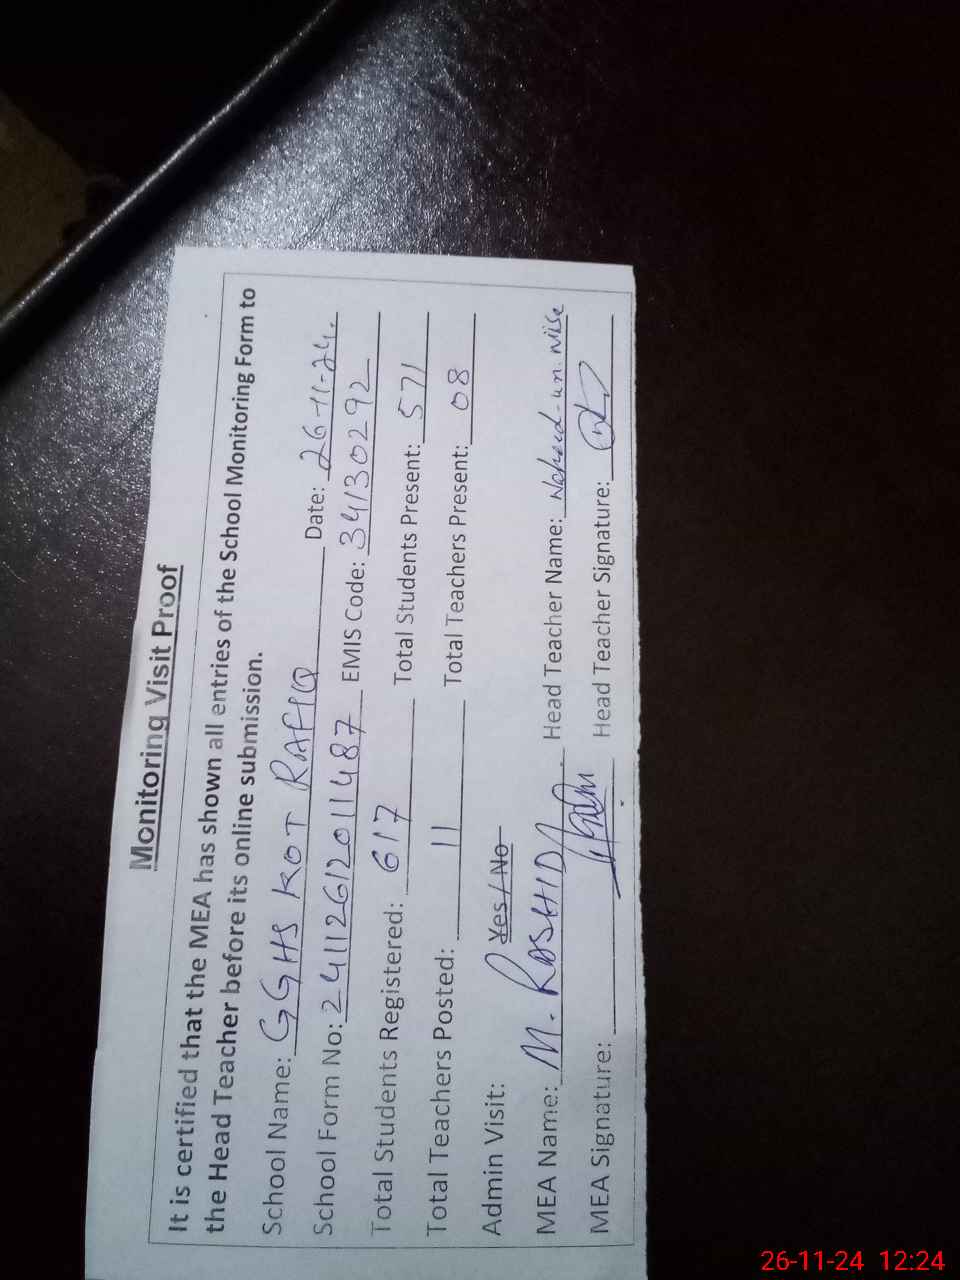 Monitoring Visit Proof
It is certified that the MEA has shown all entries of the School Monitoring Form to
the Head Teacher before its online submission.
School Name: GGHS KOT RAFIQ Date: 26-11-24.
School Form No: 24112612011487 EMIS Code: 34130292
Total Students Registered: 617 Total Students Present: 571
Total Teachers Posted: 11 Total Teachers Present: 08
Admin Visit: Yes / No
MEA Name: M. RASHID Head Teacher Name:
MEA Signature: Head Teacher Signature:
26-11-24 12:24